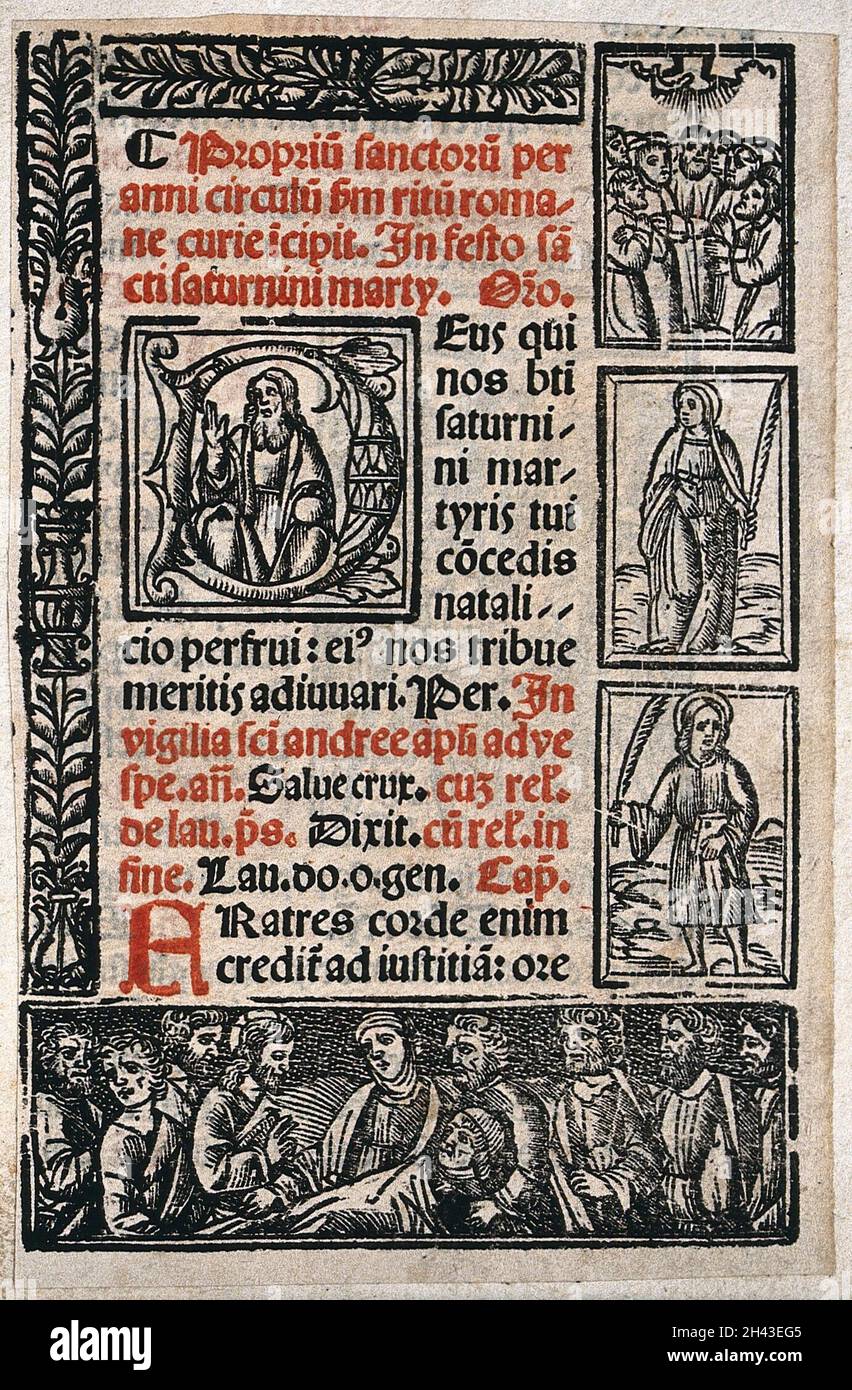 ¶ Propriū sanctorū per
anni circulū ẜm ritū roma⸗
ne curie īcipit. In festo sā
cti saturnini marty. Orō.
DEus qui
nos bti
saturni⸗
ni mar⸗
tyris tui
cōcedis
natali⸗⸗
cio perfrui: eiꝰ nos tribue
meritis adiuuari. Per. In
vigilia sci andree apli ad ve
spe. an̄. Salue crux. cuz rel.
de lau. p̄s. Dixit. cū rel. in
fine. Lau. do. o. gen. Cap̄.
FRatres corde enim
credit̄ ad iustitiā: ore
alamy
Image ID: 2H43EG5
www.alamy.com